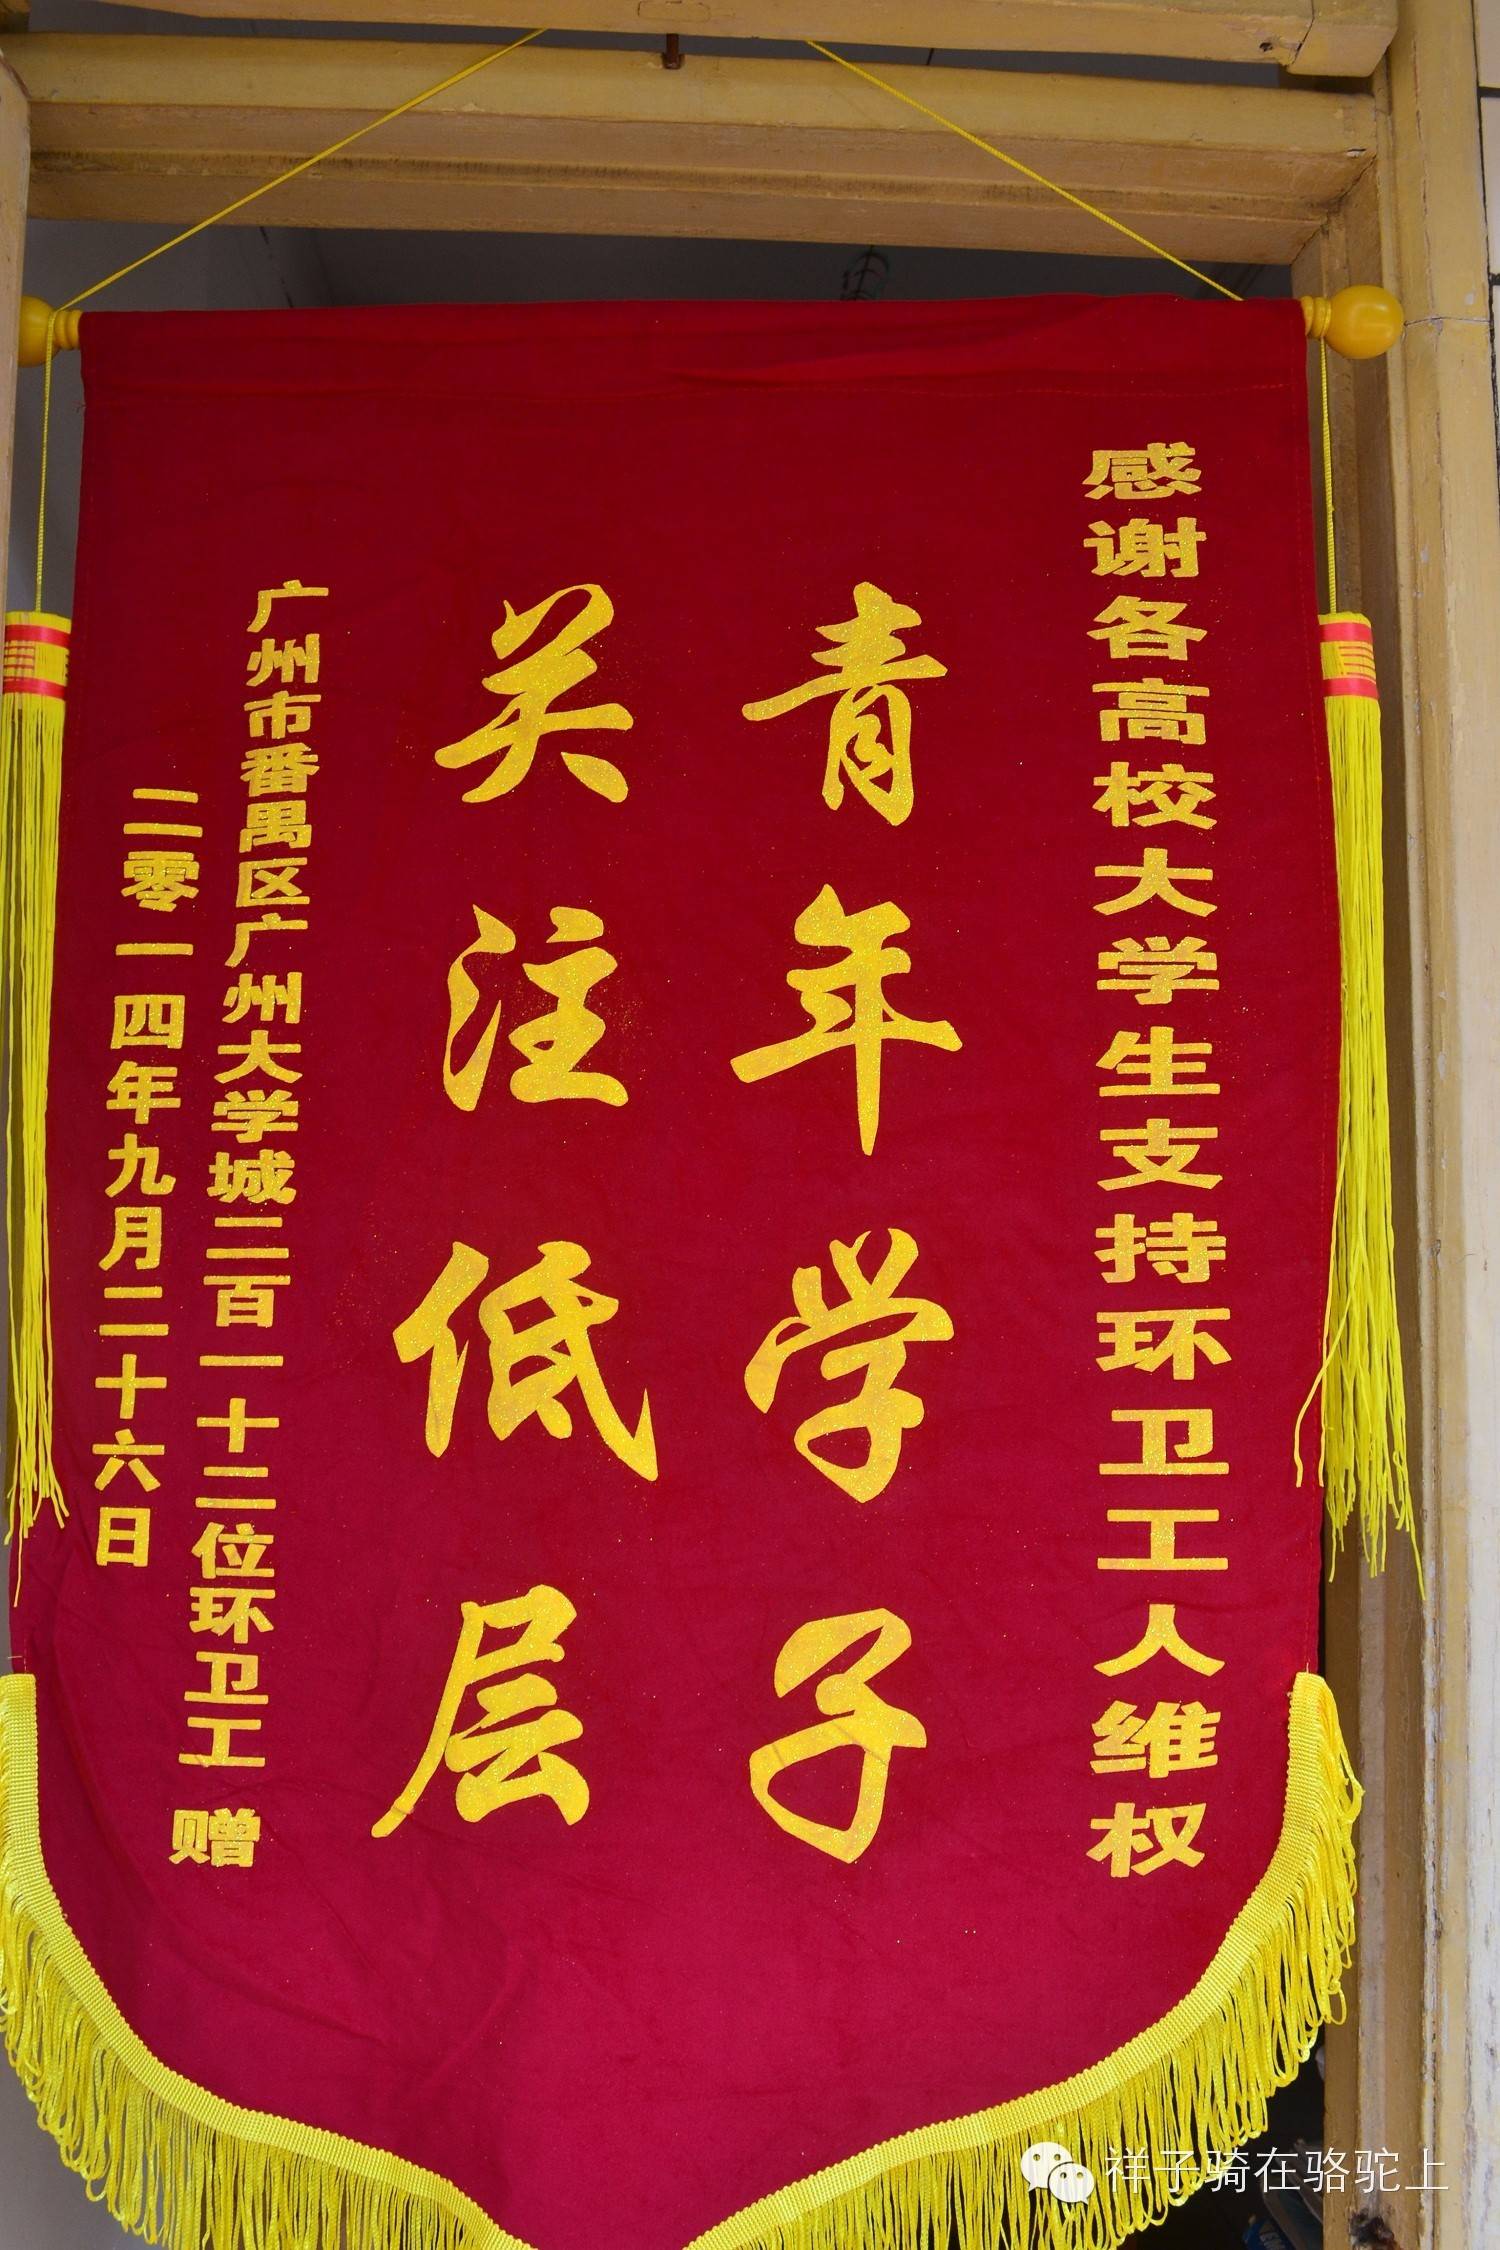 感谢各高校大学生支持环卫工人维权
青年学子
关注低层
广州市番禺区广州大学城二百一十二位环卫工 赠
二零一四年九月二十六日
祥子骑在骆驼上